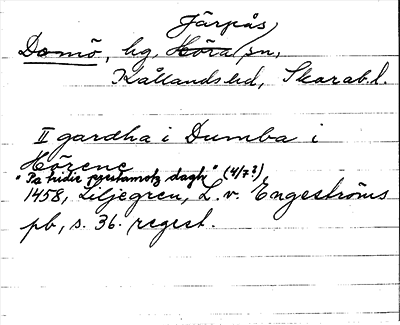 Järpås
Domö, hg, Höra sn,
Kållands hd, Skarab.l.
II gardha i Dumba i
Hörene
"Pa tridie pyntamotz dagh" (4/7?)
1458, Liljegren, L. v. Engeströms
pb, s. 36. regest.